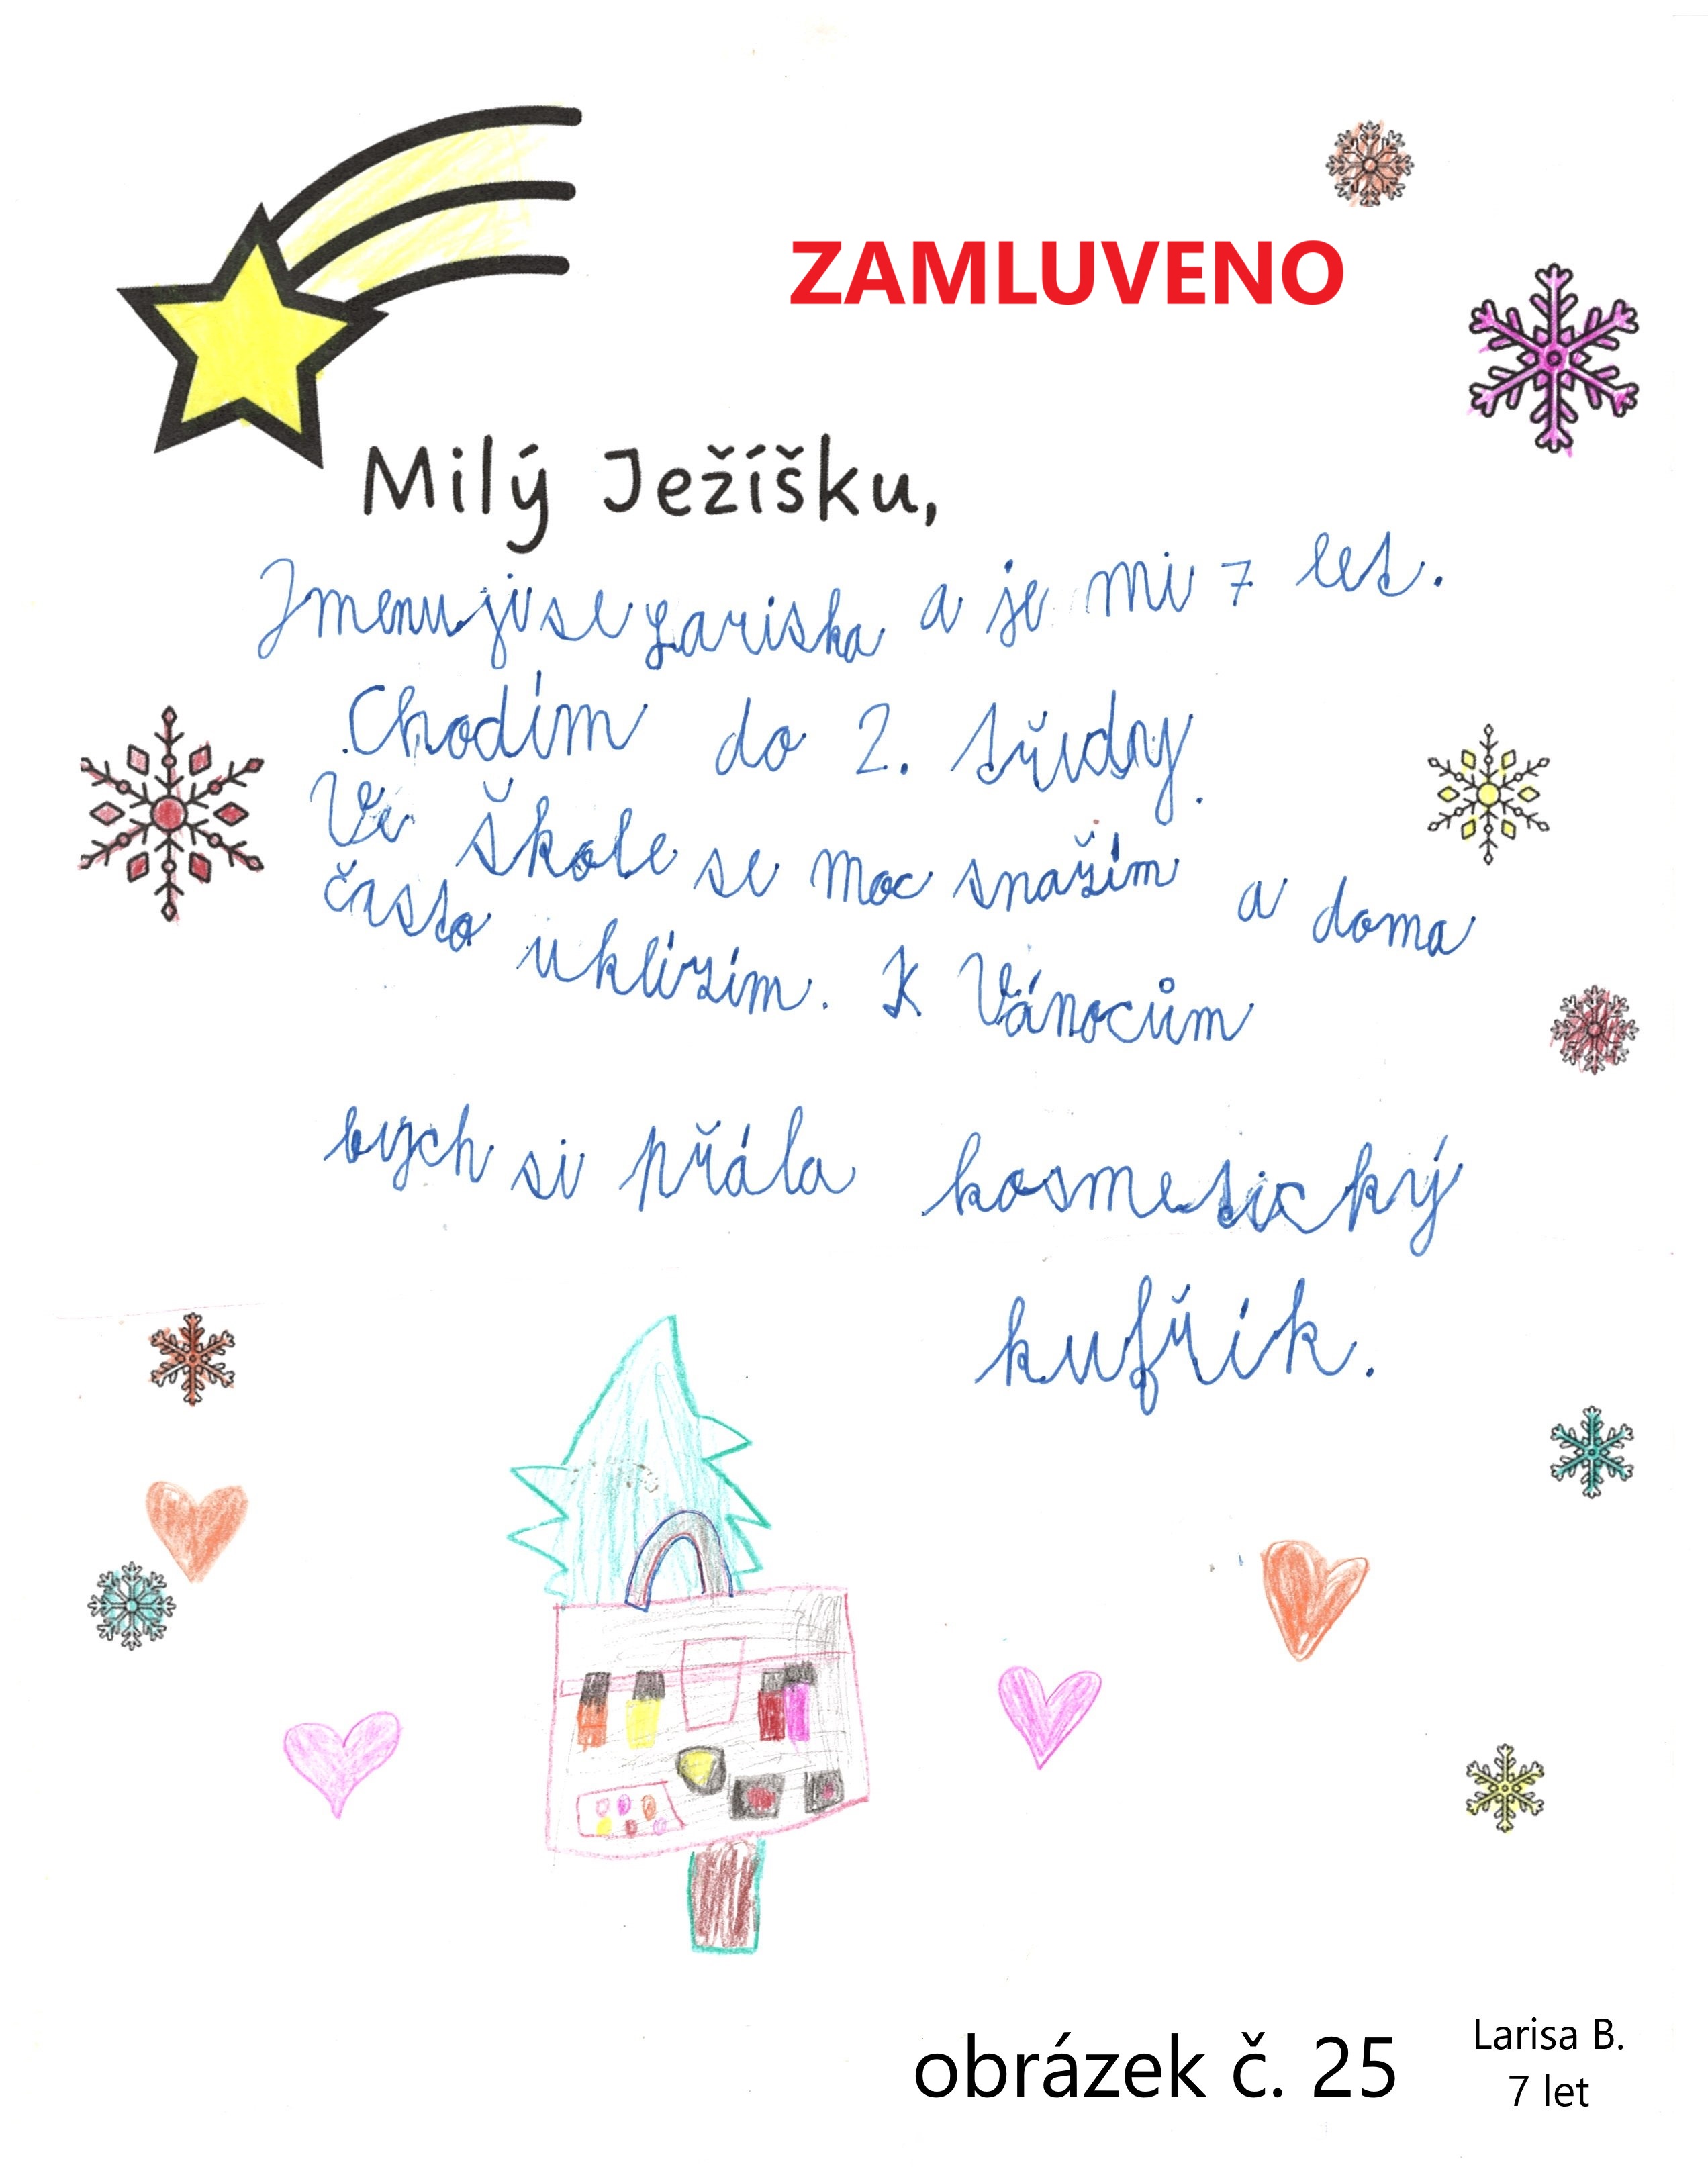 ZAMLUVENO
Milý Ježíšku,
Jmenuji se Lariska a je mi 7 let.
Chodím do 2. třídy.
Ve škole se moc snažím a doma
často uklízím. K Vánocům
bych si přála kosmetický
kufřík.
obrázek č. 25
Larisa B.
7 let